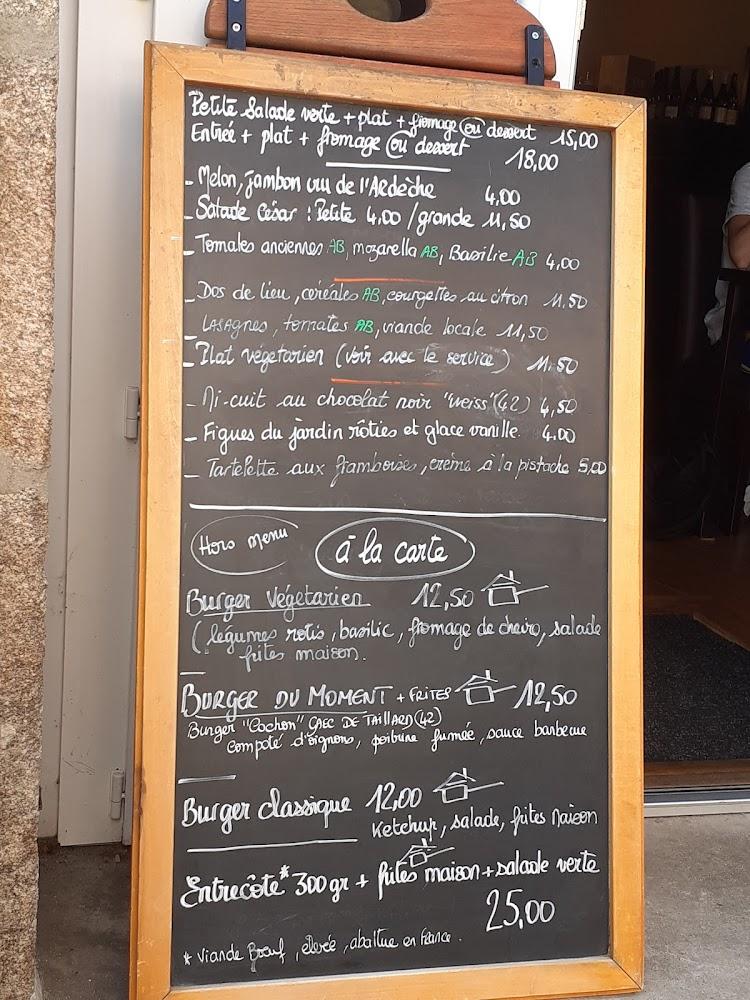 Petite Salade verte + plat + fromage ou dessert 15,00
Entrée + plat + fromage ou dessert 18,00
- Melon, jambon cru de l'Ardèche 4,00
- Salade César : Petite 4,00 / grande 11,50
- Tomates anciennes AB, mozarella AB, Basilic AB 4,00
- Dos de lieu, céréales AB, courgettes au citron 11,50
- LASAgnes, tomates AB, viande locale 11,50
- Plat végétarien (voir avec le service) 11,50
- Mi-cuit au chocolat noir "weiss" (42) 4,50
- Figues du jardin rôties et glace vanille 4.00
- Tartelette aux framboises, crème à la pistache 5,00
Hors menu
à la carte
Burger Végétarien 12,50
(légumes rotis, basilic, fromage de chèvre, salade
frites maison.
BURGER DU MOMENT + FRITES 12,50
Burger "Cochon" GAEC DE TAILLARD (42)
compoté d'oignons, poitrine fumée, sauce barbecue
Burger classique 12,00
Ketchup, salade, frites Maison
Entrecôte* 300gr + frites maison + salade verte
25,00
* Viande Bœuf, élevée, abattue en France.